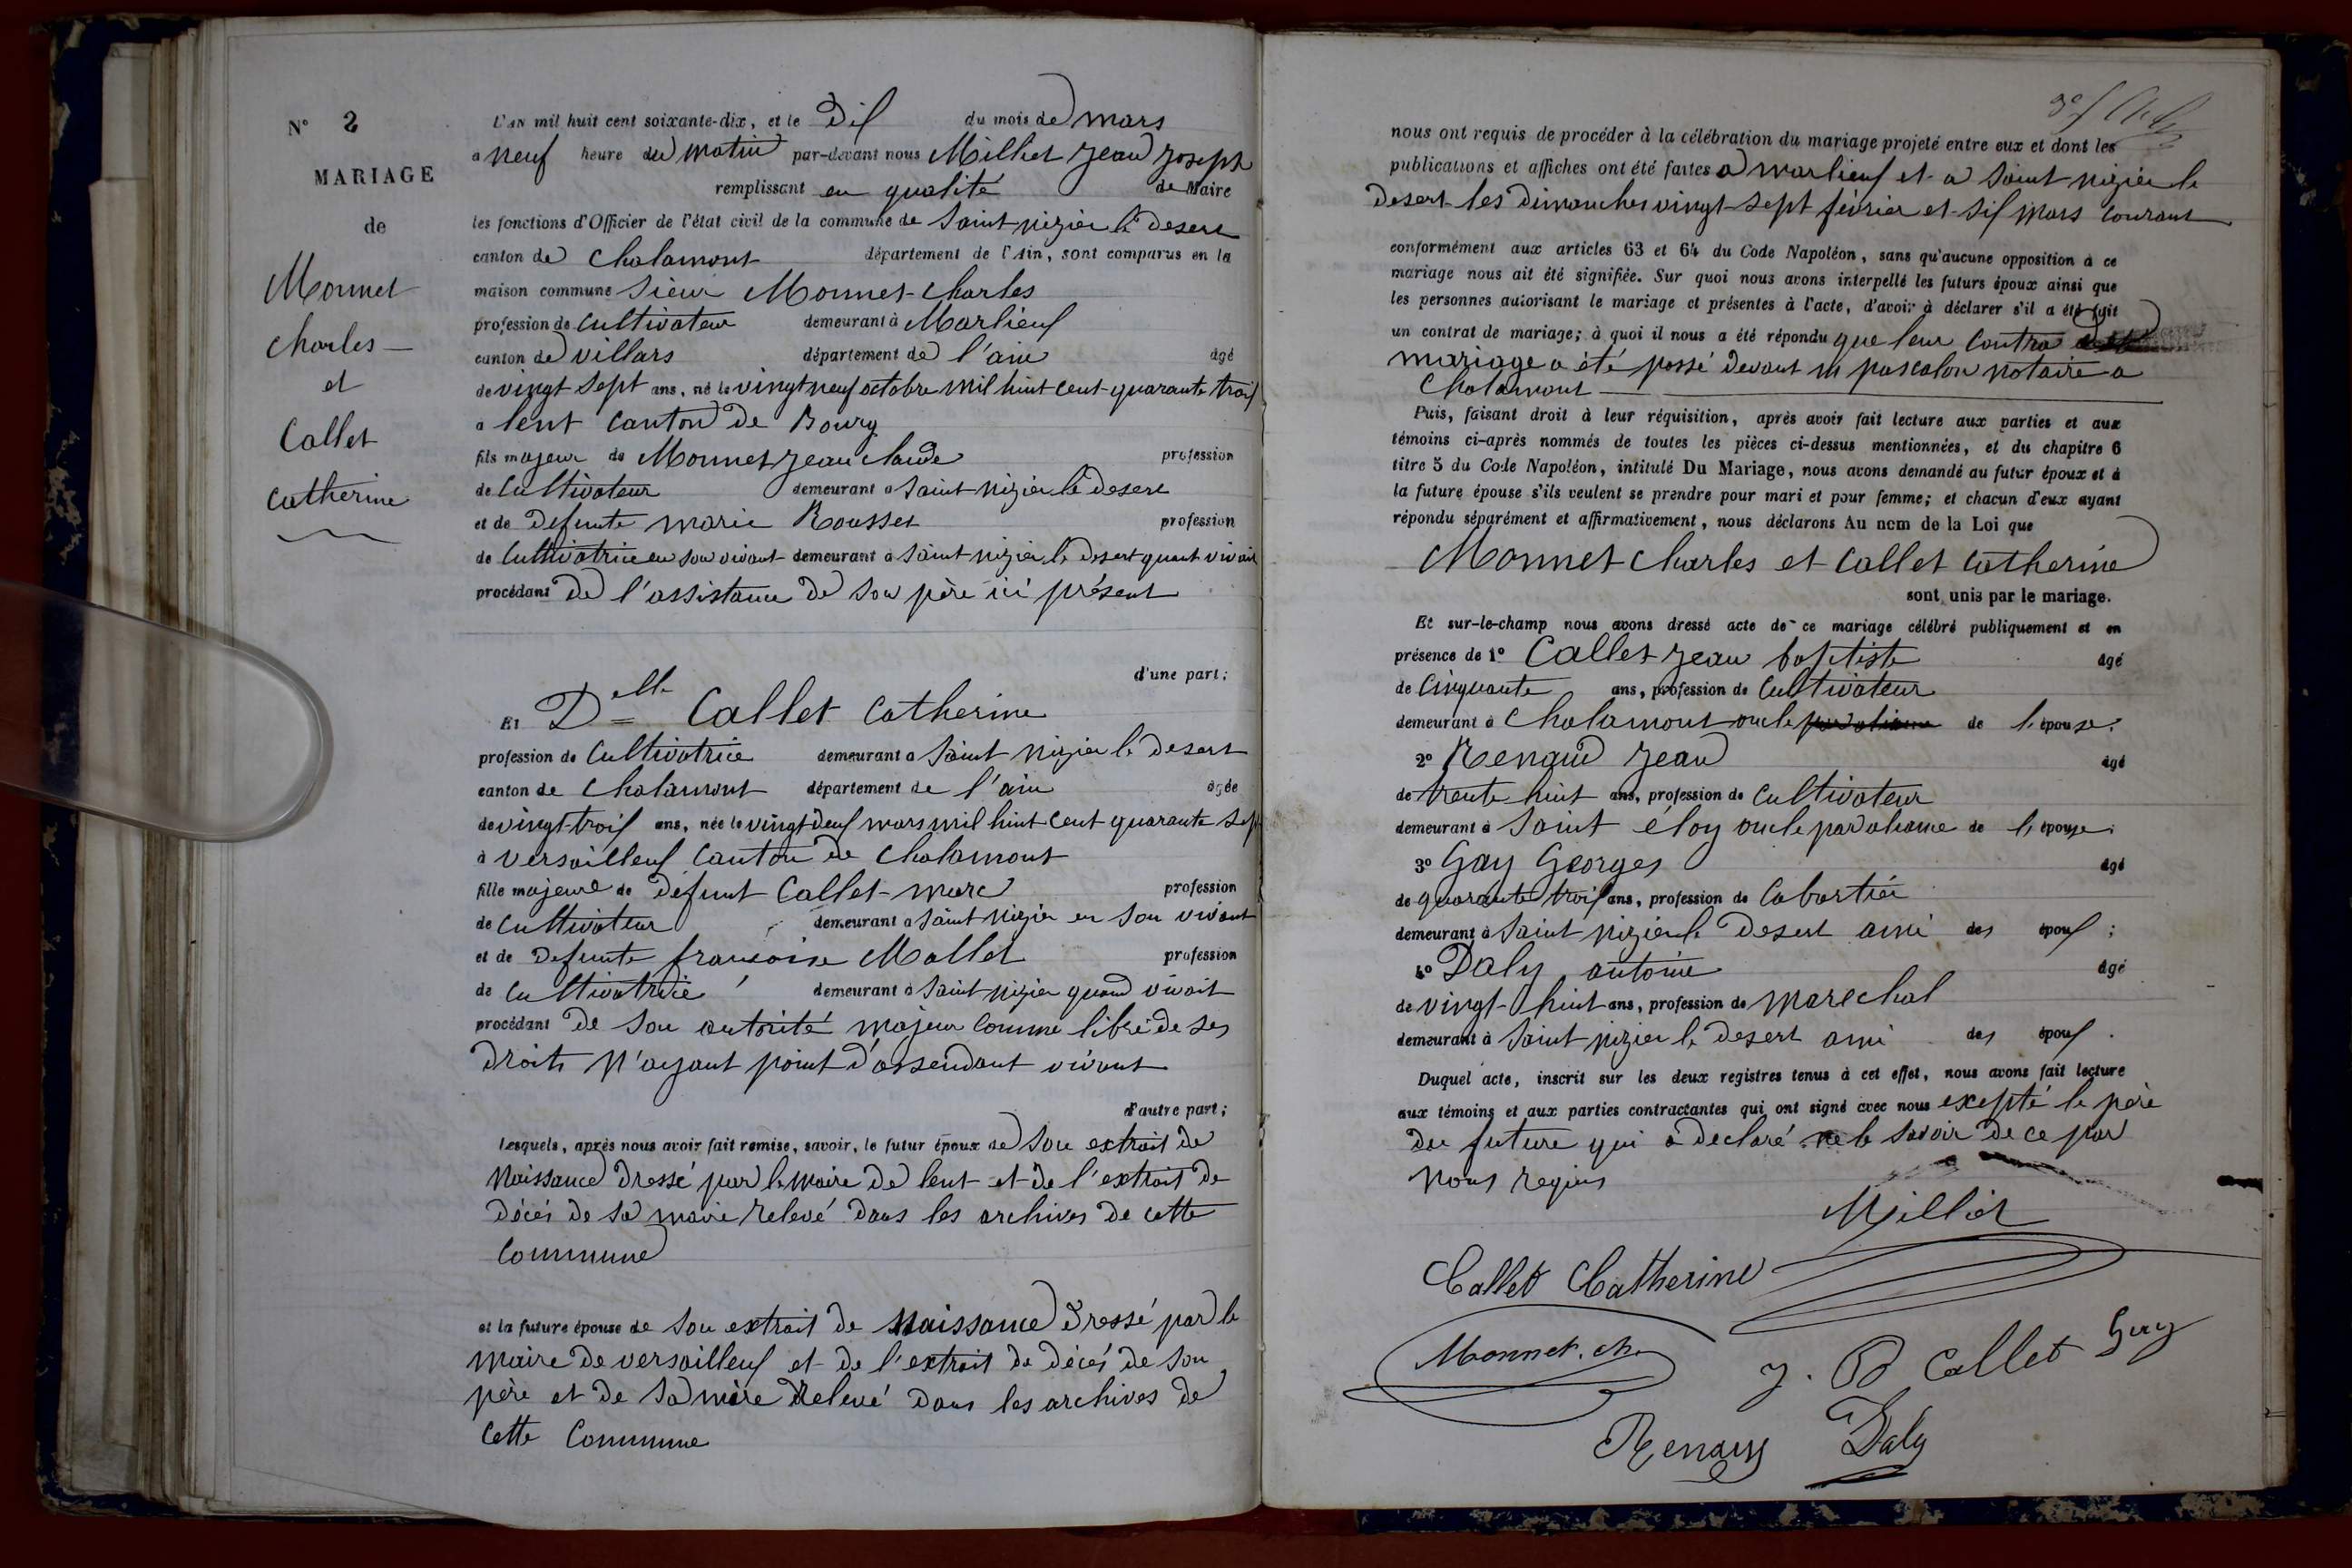 N° 2
MARIAGE
de
Monnet
charles
et
Callet
catherine
L'AN mil huit cent soixante-dix, et le Dix du mois de mars
a neuf heure du matin par-devant nous Millet Jean Joseph
remplissant en qualité de Maire
les fonctions d'Officier de l'état civil de la commune de Saint nizier le Desert
canton de Chalamont département de l'Ain, sont comparus en la
maison commune Sieur Monnet Charles
profession de Cultivateur demeurant à Marlieux
canton de villars département de l'ain âgé
de vingt sept ans, né le vingt neuf octobre mil huit cent quarante trois
a lent Canton de Bourg
fils majeur de Monnet Jean claude profession
de Cultivateur demeurant a Saint Nizier le desert
et de Defunte marie Rousset profession
de Cultivatrice en son vivant demeurant à Saint nizier le Desert quant vivait
procédant de l'assistance de son père ici présent
d'une part;
Et Delle Callet Catherine
profession de Cultivatrice demeurant a Saint Nizier le desert
canton de Chalamont département de l'ain agée
de vingt trois ans, née le vingt deux mars mil huit cent quarante sept
à versailleux Canton de Chalamont
fille majeure de défunt Callet marc profession
de Cultivateur demeurant a Saint Nizier en son vivant
et de Defunte francoise Mallet profession
de Cultivatrice demeurant à Saint Nizier quand vivait
procédant de son autorité majeur comme libre de ses
droits N'ayant point d'assendant vivant
d'autre part;
Lesquels, après nous avoir fait remise, savoir, le futur époux de son extrait de
Naissance dressé par le maire de lent et de l'extrait de
décés de sa maire relevé dans les archives de cette
Commune
et la future épouse de son extrait de Naissance dressé par le
maire de versailleux et de l'extrait de décés de son
père et de sa mère relevé dans les archives de
Cette Commune
nous ont requis de procéder à la célébration du mariage projeté entre eux et dont les
publications et affiches ont été faites a marlieux et a Saint nizier le
Desert les dimanches vingt sept février et six mars courant
conformément aux articles 63 et 64 du Code Napoléon, sans qu'aucune opposition à ce
mariage nous ait été signifiée. Sur quoi nous avons interpellé les futurs époux ainsi que
les personnes autorisant le mariage et présentes à l'acte, d'avoir à déclarer s'il a été fait
un contrat de mariage; à quoi il nous a été répondu que leur contra
mariage a été passé devant m pascalon notaire a
Chalamont
Puis, faisant droit à leur réquisition, après avoir fait lecture aux parties et aux
témoins ci-après nommés de toutes les pièces ci-dessus mentionnées, et du chapitre 6
titre 5 du Code Napoléon, intitulé Du Mariage, nous avons demandé au futur époux et à
la future épouse s'ils veulent se prendre pour mari et pour femme; et chacun d'eux ayant
répondu séparément et affirmativement, nous déclarons Au nom de la Loi que
Monnet Charles et Callet Catherine
sont unis par le mariage.
Et sur-le-champ nous avons dressé acte de ce mariage célébré publiquement et en
présence de 1° Callet Jean baptiste âgé
de Cinquante ans, profession de Cultivateur
demeurant à Chalamont oncle de l'épouse.
2° Renaud Jean âgé
de trente huit ans, profession de Cultivateur
demeurant à Saint éloy oncle par aliance de l'épouse;
3° Gay Georges âgé
de quarante trois ans, profession de Cabartier
demeurant à Saint nizier le Desert ami des époux;
4° Daly antoine âgé
de vingt huit ans, profession de marechal
demeurant à Saint nizier le desert ami des époux.
Duquel acte, inscrit sur les deux registres tenus à cet effet, nous avons fait lecture
aux témoins et aux parties contractantes qui ont signé avec nous excepté le père
du future qui a declaré ne le savoir de ce par
nous requis
Milliet
Callet Catherine
Monnet. ch.
J. B Callet Gay
Renaud Daly